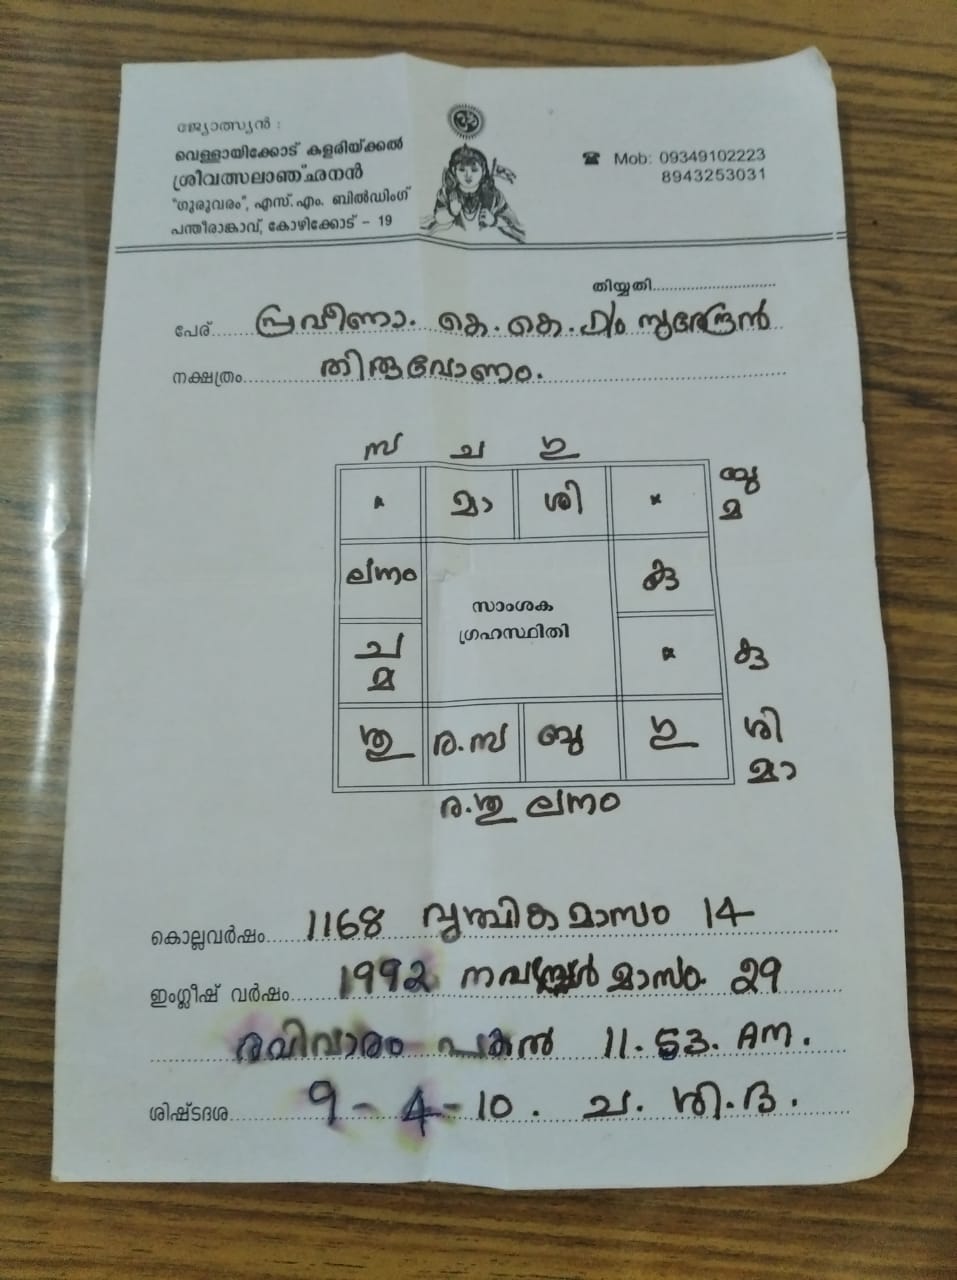 ജ്യോത്സ്യൻ :
വെള്ളായിക്കോട് കളരിയ്ക്കൽ
ശ്രീവത്സലാഞ്ഛനൻ
"ഗുരുവരം", എസ്.എം. ബിൽഡിംഗ്
പന്തീരാങ്കാവ്, കോഴിക്കോട് – 19
ॐ
☎ Mob: 09349102223
8943253031
തിയ്യതി..............................
പേര്..... പ്രവീണാ. കെ. കെ. സുരേന്ദ്രൻ
നക്ഷത്രം..... തിരുവോണം.
സ ച ഗു
x മാ ശി x ബു മ
ലഗ്നം കു
സാംശക
ഗ്രഹസ്ഥിതി
ച മ x കു
ശു ര.സ ബു ഗു ശി മാ
ര.ശു ലഗ്നം
കൊല്ലവർഷം..... 1168 വൃശ്ചികമാസം 14
ഇംഗ്ലീഷ് വർഷം..... 1992 നവമ്പർ മാസം 29
രവിവാരം പകൽ 11.53. AM.
ശിഷ്ടദശ..... 9-4-10. ച. ശി.ദ.